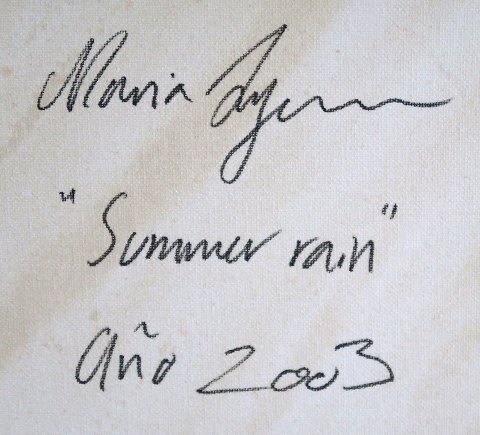 Maria
"Summer rain"
Año 2003